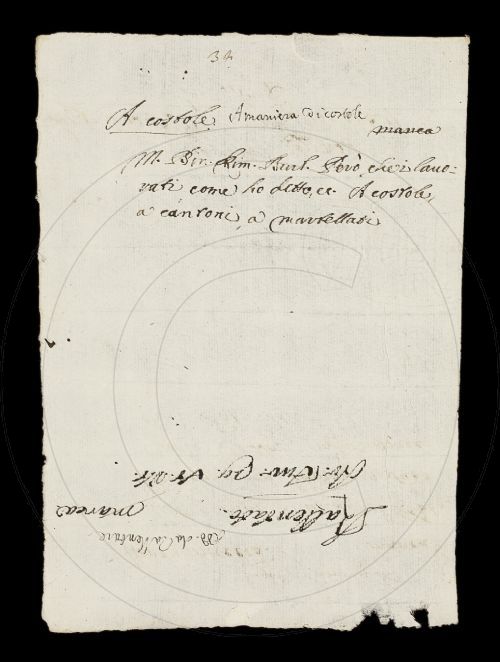 34
A costole. A maniera di costole
manca
M. Bin. rim. Burl. Però, che i lavo-
rati come ho detto, ec. A costole,
a cantoni, a martellati
Rallentare.
manca
da Rallentare